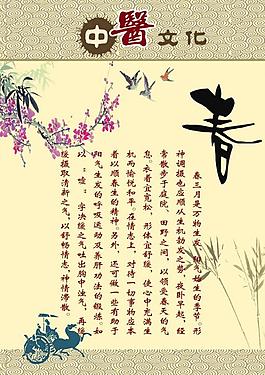 中醫文化
春
春三月是万物生发、阳气始生的季节。形
神调摄也应顺从生机勃发之势，夜卧早起，经
常散步于庭院、田野之间，以领受春天的气
息。衣着宜宽松，形体宜舒缓，使心中充满生
机而愉悦和平。在情志上，对待一切事物应本
着以顺春生的精神。另外，还可做一些有助于
阳气生发的呼吸运动及养肝功法的锻炼。如
以“嘘”字决缓之气吐出胸中浊气，再缓
缓摄取清新之气，以舒畅情志，神情滞散。